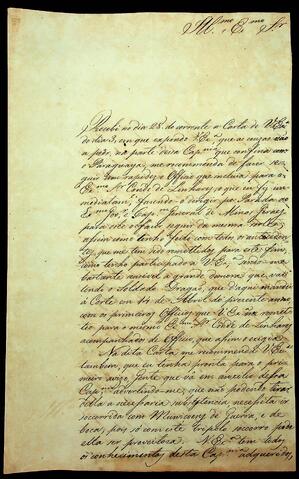 Ill.mo e Ex.mo Sr.
Recebi no dia 28 do corrente a Carta de V. Ex.a
do dia 3, em que expondo V. Ex.a que as cousas vão
a peor, na parte dessa Cap.nia que confina com
o Paraguay, me recomenda de fazer se-
guir com rapidez o Officio que incluia para o
Ex.mo Sr. Conde de Linhares, o que eu fiz im-
mediatam.e fazendo o dirigir por Parada ao
Ex.mo Gov.or e Cap.m General de Minas Geraes
para este o fazer seguir da mesma sorte,
assim como tenho feito com todos os anteceden-
tes, que me tem sido remettidos para este fim,
como tenho participado a V. Ex.a
bastante sensivel a grande demora que vai
tendo o Soldado Dragão, que daqui mandei
á Corte em 14 de Abril do presente anno
com os primeiros Officios que V. Ex.a me remet-
teo para o mesmo Ex.mo Sr. Conde de Linhares,
acompanhado de Officio, que assim o exigia.
Na dita Carta me recommenda V. Ex.a
tambem, que eu tenha prompta para o pri-
meiro avizo gente que vá em auxilio dessa
Cap.nia advertindo-me, que não podendo tirar
della a necessaria subsistencia necessita ir
soccorrida com Municoens de Guerra, e de
boca, pois só com este triplo soccorro pode
ella ser proveitosa. V. Ex.a tem todos
os conhecimentos desta Cap.nia adqueridos,